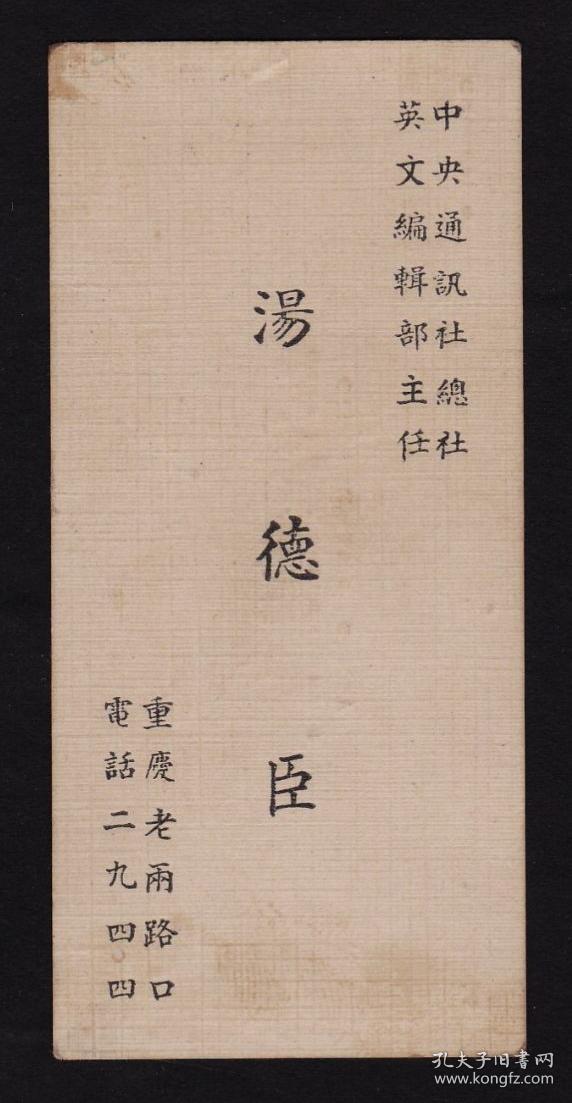 中央通訊社總社
英文編輯部主任
湯德臣
重慶老兩路口
電話二九四四
孔夫子旧书网
www.kongfz.com